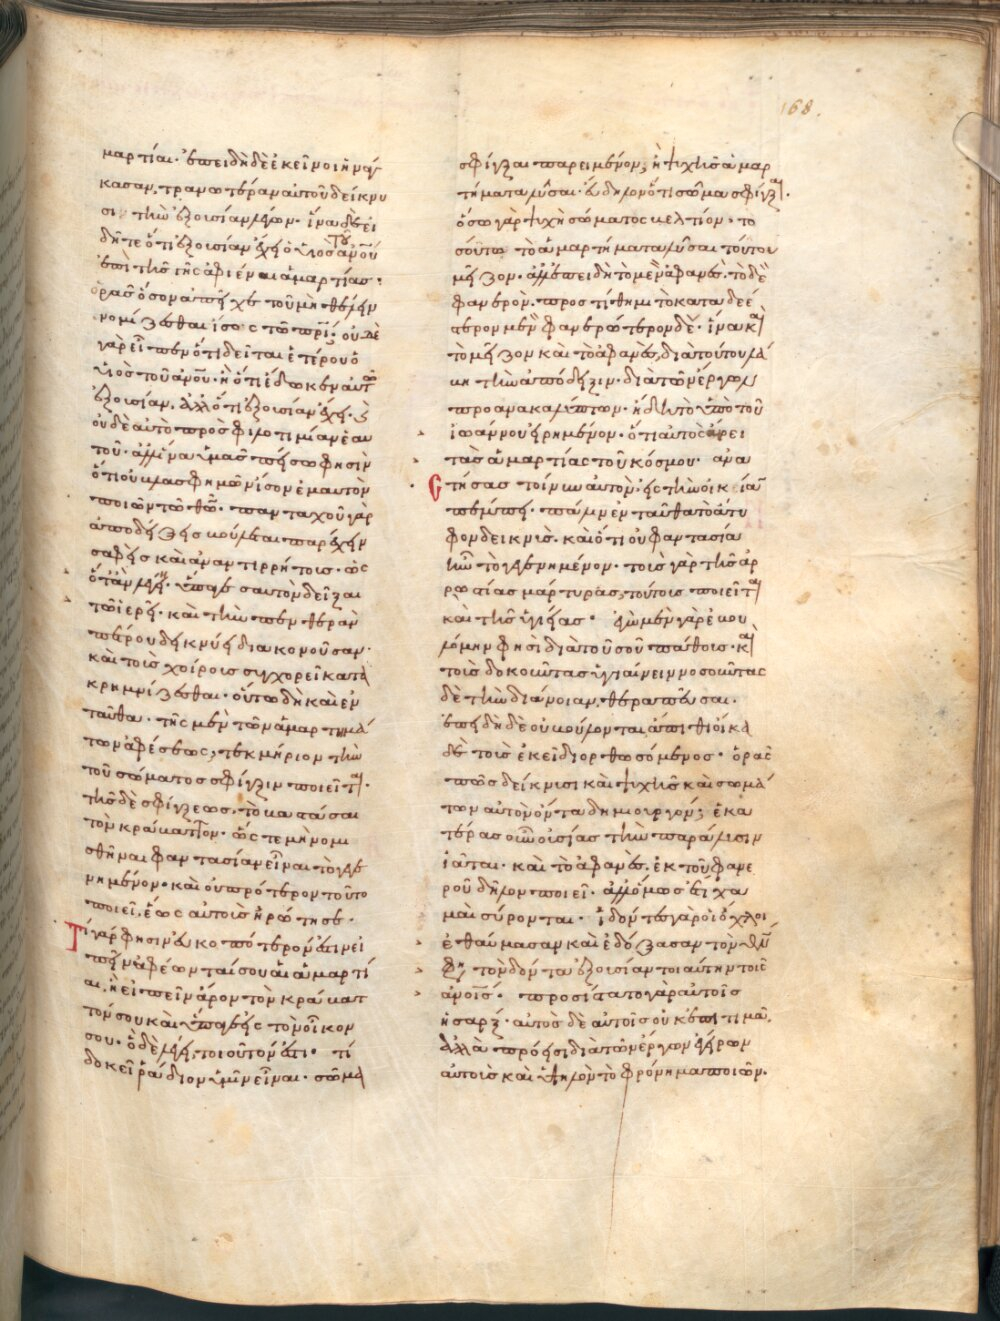 168.
μαρτίαι· ἐπειδὴ δὲ ἐκεῖνοι ἠνάγ
κασαν, τρανωτέραν αὐτοῦ δείκνυ
σιν τὴν ἐξουσίαν λέγων· ἵνα δὲ εἰ
δῆτε ὅτι ἐξουσίαν ἔχει ὁ υἱὸς τοῦ ἀνου
ἐπὶ τῆς γῆς ἀφιέναι ἁμαρτίας·
ὁρᾶς ὅσον ἀπεῖχε τοῦ μὴ θέλειν
νομίζεσθαι ἴσος τῶ πρί; οὐδὲ
γὰρ εἶπεν ὅτι δεῖται ἑτέρου ὁ
υἱὸς τοῦ ἀνου· ἢ ὅτι ἔδωκεν αὐτῶ
ἐξουσίαν, ἀλλ' ὅτι ἐξουσίαν ἔχει·
οὐδὲ αὐτὸ πρὸς φιλοτιμίαν ἑαυ
τοῦ· ἀλλ' ἵνα ὑμᾶς πείσω φησὶν
ὅτι οὐ βλασφημῶν ἴσον ἐμαυτὸν
ποιῶν τῶ θῶ· πανταχοῦ γὰρ
ἀποδείξεις βούλεται παρέχειν
σαφεῖς καὶ ἀναντιρρήτοις· ὡς
ὅταν λέγη· ὕπαγε σαυτὸν δεῖξαι
τῶ ἱερεῖ· καὶ τὴν πενθερὰν
πέτρου δείκνύη διακονοῦσαν·
καὶ τοῖς χοίροις συγχωρεῖ κατα
κρημνίζεσθαι· οὕτω δὴ καὶ ἐν
ταῦθα· τῆς μὲν τῶν ἁμαρτημά
των ἀφέσεως, τεκμήριον τὴν
τοῦ σώματος σφίγξιν ποιεῖται·
τῆς δὲ σφίγξεως, τὸ βαστάσαι
τὸν κράβαττον· ὥστε μὴ νομι
σθῆναι φαντασίαν εἶναι τὸ γεγε
νημένον· καὶ οὐ πρότερον τοῦτο
ποιεῖ, ἕως αὐτοῖς ἠρώτησε·
Τί γάρ φησιν εὐκοπώτερόν ἐστιν εἰ
πεῖν ἀφέωνταί σου αἱ ἁμαρτί
αι, ἢ εἰπεῖν ἆρον τὸν κράβαττ
τόν σου καὶ ὕπαγε εἰς τὸν οἶκον
σου· ὃ δὲ λέγει, τοιοῦτόν ἐστι· τί
δοκεῖ ῥάδιον ὑμῖν εἶναι· σῶμα
σφίγξαι παρειμένον; ἢ ψυχῆς ἁμαρ
τήματα λῦσαι· εὔδηλον ὅτι σῶμα σφίγξαι·
ὅσω γὰρ ψυχὴ σώματος βελτίον· το
σούτω τὸ ἁμαρτήματα λῦσαι τούτου
μεῖζον· ἀλλ' ἐπειδὴ τὸ μὲν ἀφανὲς· τὸ δὲ
φανερὸν· προστίθημι τὸ καταδεέ
στερον μὲν φανερώτερον δέ· ἵνα καὶ
τὸ μεῖζον καὶ τὸ ἀφανὲς, διὰ τούτου λά
βη τὴν ἀπόδειξιν· διὰ τῶν ἔργων
προανακαλύπτων· ἤδη τὸ ὑπὸ τοῦ
ἰωάννου εἰρημένον· ὅτι αὐτὸς αἴρει
τὰς ἁμαρτίας τοῦ κόσμου· ἀνα
στήσας τοίνυν αὐτὸν, εἰς τὴν οἰκίαν
πέμπει· πάλιν ἐνταῦθα τὸ ἄτυ
φον δεικνὺς· καὶ ὅτι οὐ φαντασία
ἦν τὸ γεγενημένον· τοὺς γὰρ τῆς ἀρ
ρωστίας μάρτυρας, τούτους ποιεῖται
καὶ τῆς ὑγιείας· ἐγὼ μὲν γὰρ ἐβου
λόμην φησὶ διὰ τοῦ σοῦ πάθους· καὶ
τοὺς δοκοῦντας ὑγιαίνειν νοσοῦντας
δὲ τὴν διάνοιαν, θεραπεῦσαι·
ἐπειδὴ δὲ οὐ βούλονται, ἄπιθι οἴκα
δε τοὺς ἐκεῖ διορθωσόμενος· ὁρᾶς
πῶς δείκνυσι καὶ ψυχῆς καὶ σωμά
των αὐτὸν ὄντα δημιουργόν; ἑκα
τέρας οὖν οὐσίας τὴν παράλυσιν
ἰᾶται· καὶ τὸ ἀφανὲς· ἐκ τοῦ φανε
ροῦ δῆλον ποιεῖ· ἀλλ' ὅμως ἔτι χα
μαὶ σύρονται· ἰδόντες γὰρ οἱ ὄχλοι
ἐθαύμασαν καὶ ἐδόξασαν τὸν θν
τὸν δόντα ἐξουσίαν τοιαύτην τοῖς
ἀνοις· προσίστατο γὰρ αὐτοῖς
ἡ σάρξ· αὐτὸς δὲ αὐτοῖς οὐκ ἐπιτιμᾶ,
ἀλλὰ πρόεισι διὰ τῶν ἔργων ἐγείρων
αὐτοὺς καὶ ὑψηλὸν τὸ φρόνημα ποιῶν·